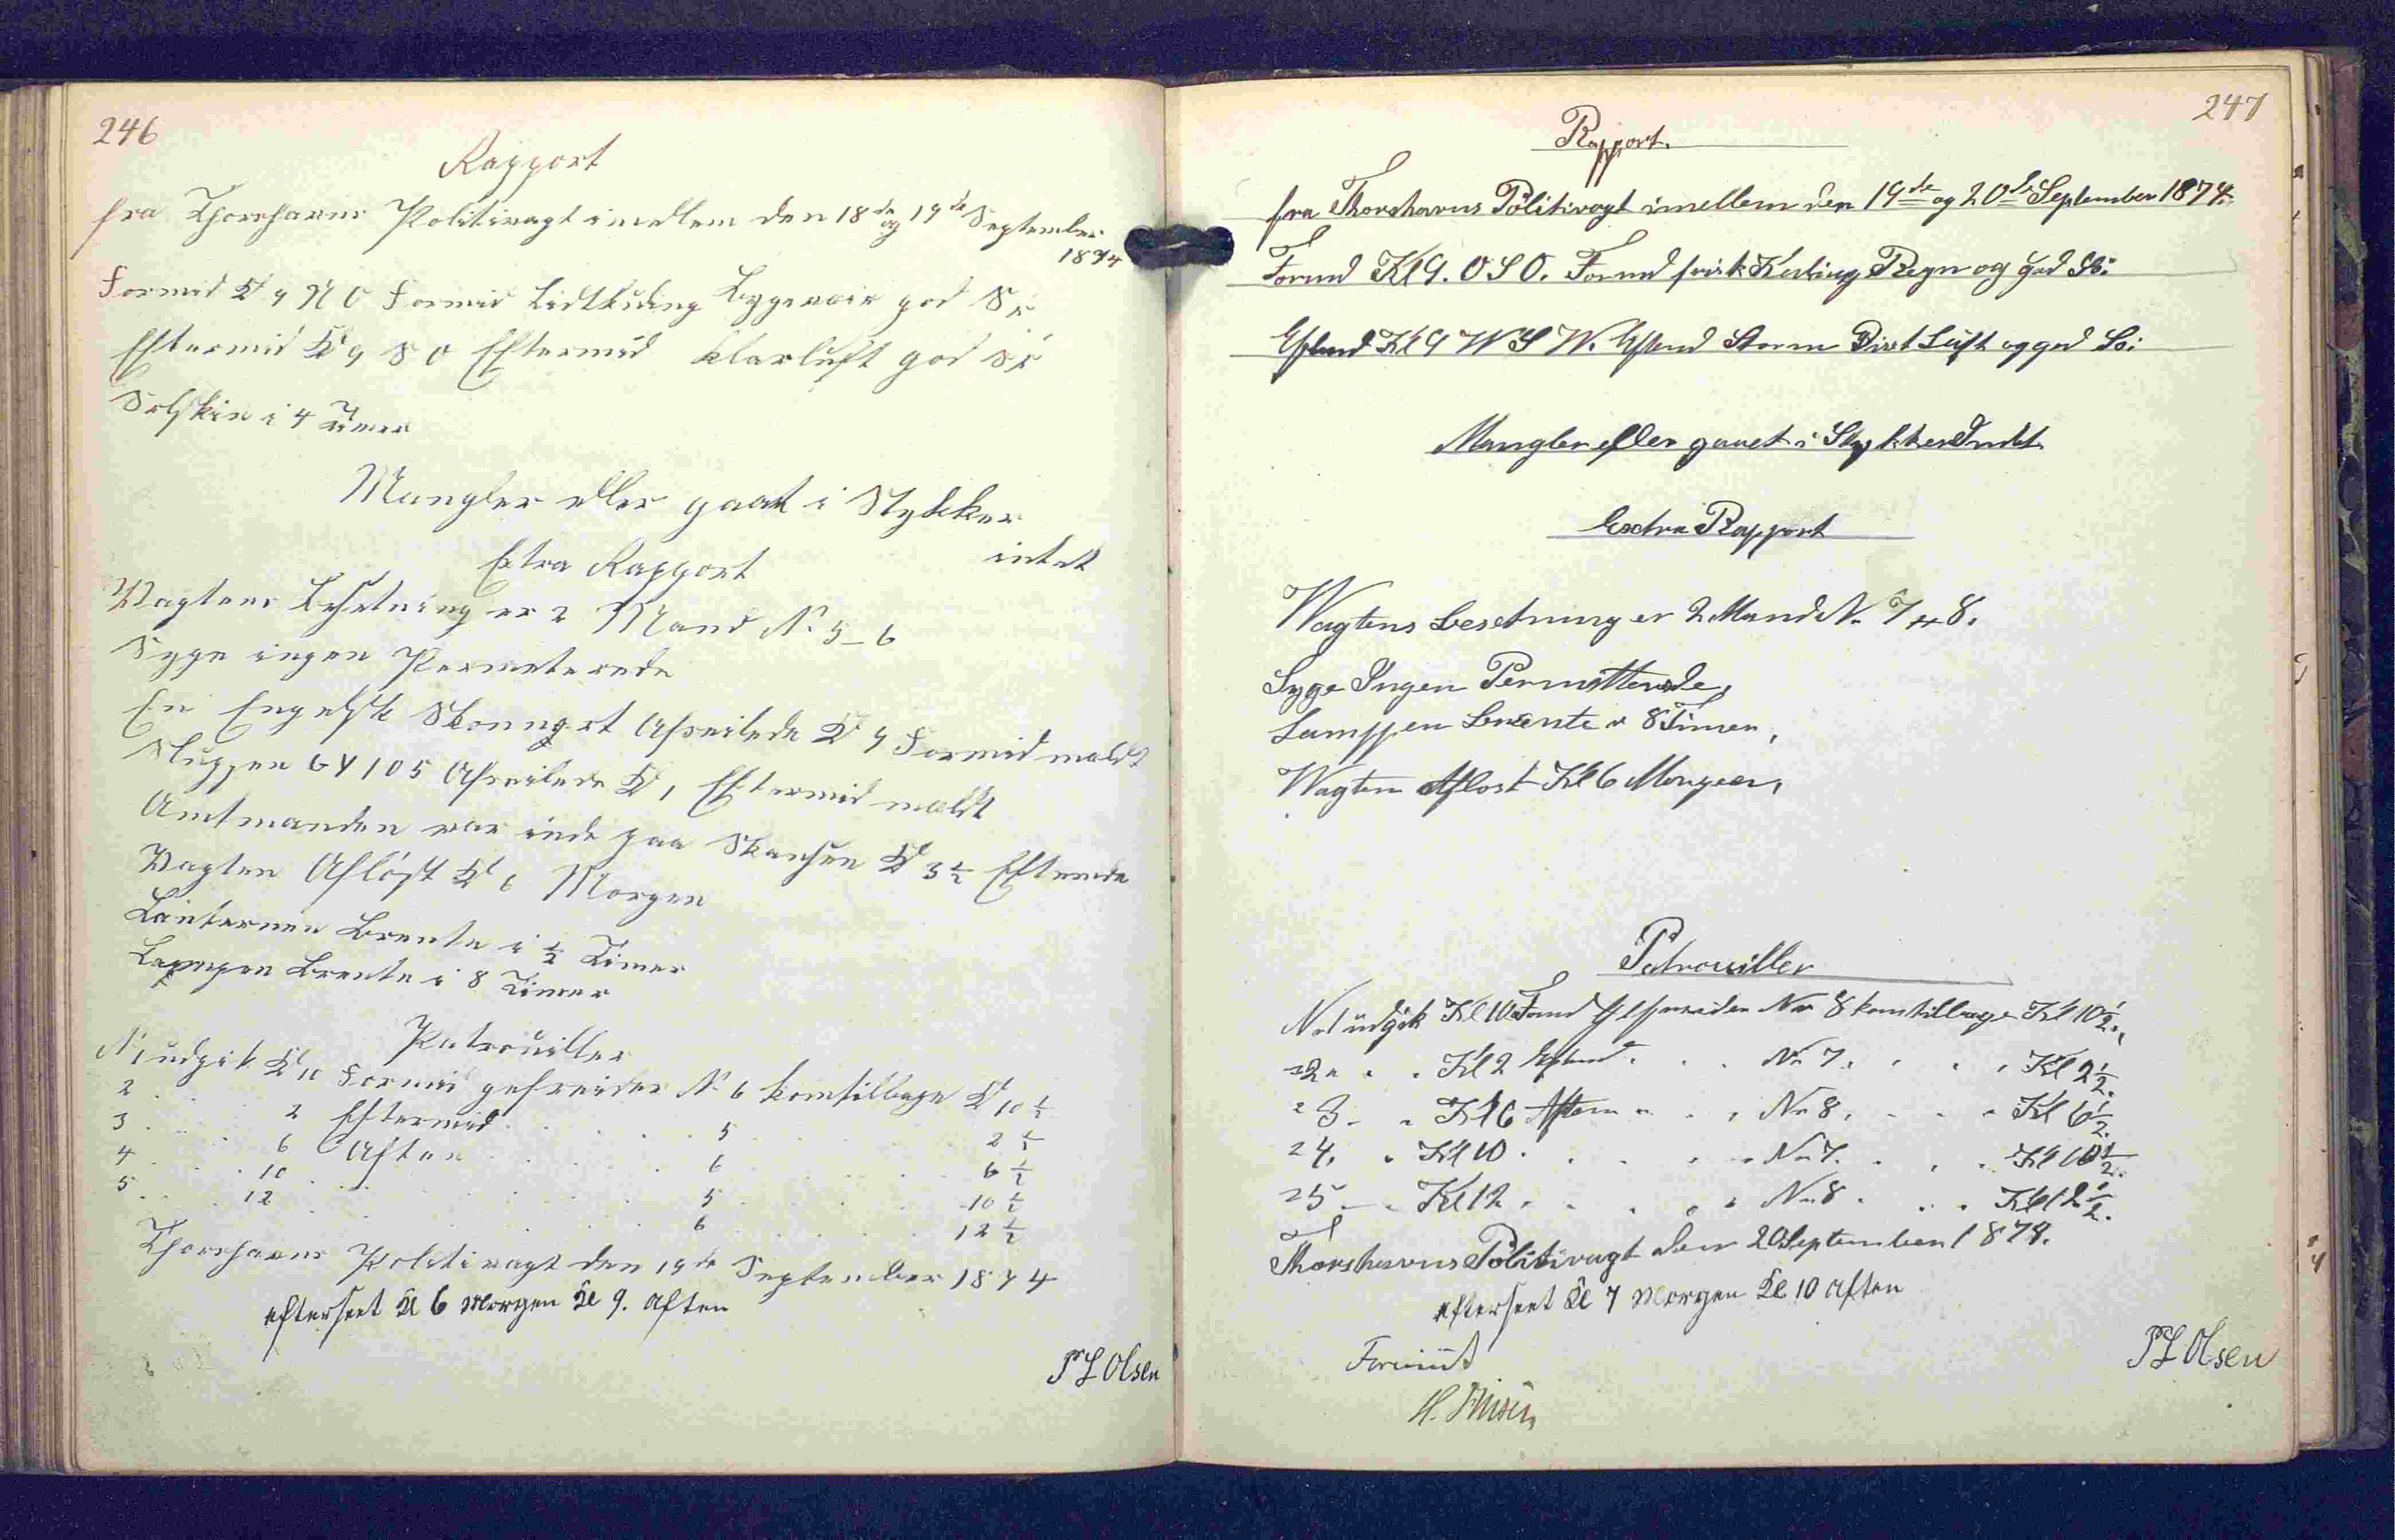 246
Rapport
fra Thorshavns Politivagt imellem den 18de og 19de September
1874
Formid Kl 9 N O Formid Lidtkuling Bygeveir god Sigt
Eftermid Kl 9 S O Eftermid klarluft god Sigt
Solskin i 4 Timer
Mangler eller gaaet i Stykker
intet
Extra Rapport
Vagtens Besetning er 2 Mand No 5-6
Syge ingen Permeterede
En Engelsk Skonnert Afseilede Kl 9 Formid
Sluppen GY 105 Afseilede Kl 1 Eftermid
Amtmanden var inde paa Skansen Kl 3½ Eftermid
Vagten Afløst Kl 6 Morgen
Lanternen Brente i ½ Timer
Lampen Brente i 8 Timer
Patrouiller
No 1 udgik Kl 10 Formid gefreider No 6 komtilbage Kl 10½
2 . . . 2 Eftermid . . . 5 . . . 2½
3 . . . 6 Aften . . . 6 . . . 6½
4 . . . 10 . . . 5 . . . 10½
5 . . . 12 . . . 6 . . . 12½
Thorshavns Politivagt den 19de September 1874
efterseet Kl 6 Morgen Kl 9. Aften
P L Olsen
247
Rapport.
fra Thorshavns Politivagt imellem den 19de og 20de September 1874.
Formd Kl 9. O S O. Formd frisk Kuling Regn og god Si:
Eftmd Kl 9 W S W. Eftmd Storm Dist Luft og god Si:
Mangler eller gaaet i Stykker Indet
Exctra Rapport
Wagtens Besetning er 2 Mand No 7 & 8.
Syge Ingen Permitterede,
Lamppen Brente i 8 Timer,
Wagten Afløst Kl 6 Morgen,
Patrouiller
No 1 udgik Kl 10 Formd Gefreider No 8 komtilbage Kl 10½.
" 2 " . . Kl 2 Eftmd . . . No 7. . . . Kl 2½.
" 3 - . Kl 6 Aften " . . No 8, . . . Kl 6½.
" 4. . Kl 10 . . . . . No 7. . . . Kl 10½.
" 5 - . Kl 12 . . . . No 8 . . . Kl 12½.
Thorshavns Politivagt den 20 September 1874.
efterseet Kl 7 Morgen Kl 10 Aften
P L Olsen